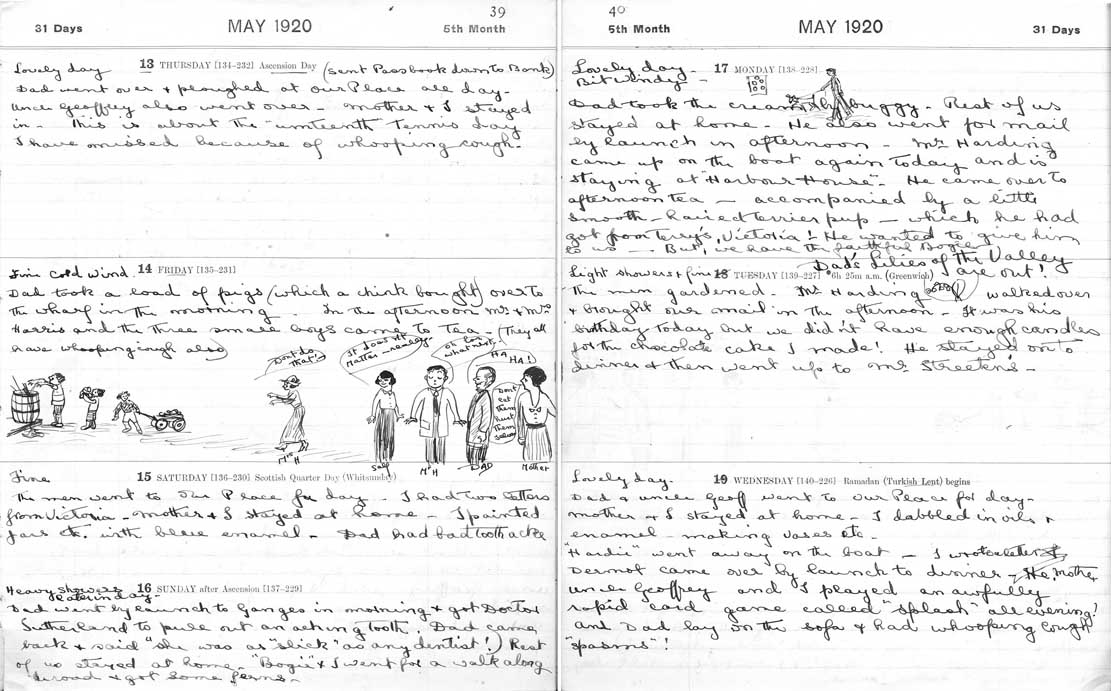 39
31 Days MAY 1920 5th Month
Lovely day 13 THURSDAY [134-232] Ascension Day (sent Passbook down to Bank)
Dad went over & ploughed at our Place all day -
Uncle Geoffrey also went over - Mother & I stayed
in - This is about the "umteenth" Tennis day
I have missed because of whooping cough -
Fine Cold wind. 14 FRIDAY [135-231]
Dad took a load of pigs (which a chink bought) over to
the wharf in the morning - In the afternoon Mr & Mrs
Harris and the three small boys came to Tea - (They all
have whooping cough also)
Don't do that!
It doesn't matter - really
oh Lor! what next
HA HA!
Don't eat them
Mrs H
Self
Mr H
DAD
Mother
Fine 15 SATURDAY [136-230] Scottish Quarter Day (Whitsunday)
The men went to our Place for day - I had two letters
from Victoria - Mother & I stayed at home - I painted
jars etc. with blue enamel - Dad had bad tooth ache
Heavy showers later in day 16 SUNDAY after Ascension [137-229]
Dad went by launch to Ganges in morning & got Doctor
Sutherland to pull out an aching tooth. Dad came
back & said "she was as "slick" as any dentist!) Rest
of us stayed at home - "Bogie" & I went for a walk along
road & got some ferns -
40
5th Month MAY 1920 31 Days
Lovely day - 17 MONDAY [138-228]
Bit windy -
Dad took the cream by buggy - Rest of us
stayed at home - He also went for mail
by launch in afternoon - Mr Harding
came up on the boat again today and is
staying at "Harbour House" - He came over to
afternoon tea - accompanied by a little
smooth-haired terrier pup - which he had
got from Terry's, Victoria! He wanted to give him
to us - But, we have the faithful Bogie
Dad's Lilies of the Valley are out!
Light showers & fine 18 TUESDAY [139-227] 6h 25m a.m. (Greenwich)
The men gardened. Mr Harding walked over
& brought our mail in the afternoon - It was his
birthday today but we didn't have enough candles
for the chocolate cake I made! He stayed on to
dinner & then went up to Mr Streeten's -
Lovely day. 19 WEDNESDAY [140-226] Ramadan (Turkish Lent) begins
Dad & Uncle Geoff went to our Place for day -
Mother & I stayed at home - I dabbled in oils &
enamel - making vases etc -
"Hardie" went away on the boat - I wrote letter
Dermot came over by launch to dinner - He, Mother
Uncle Geoffrey and I played an awfully
rapid card game called "Splash" all evening!
And Dad lay on the sofa & had whooping cough
"spasms"!